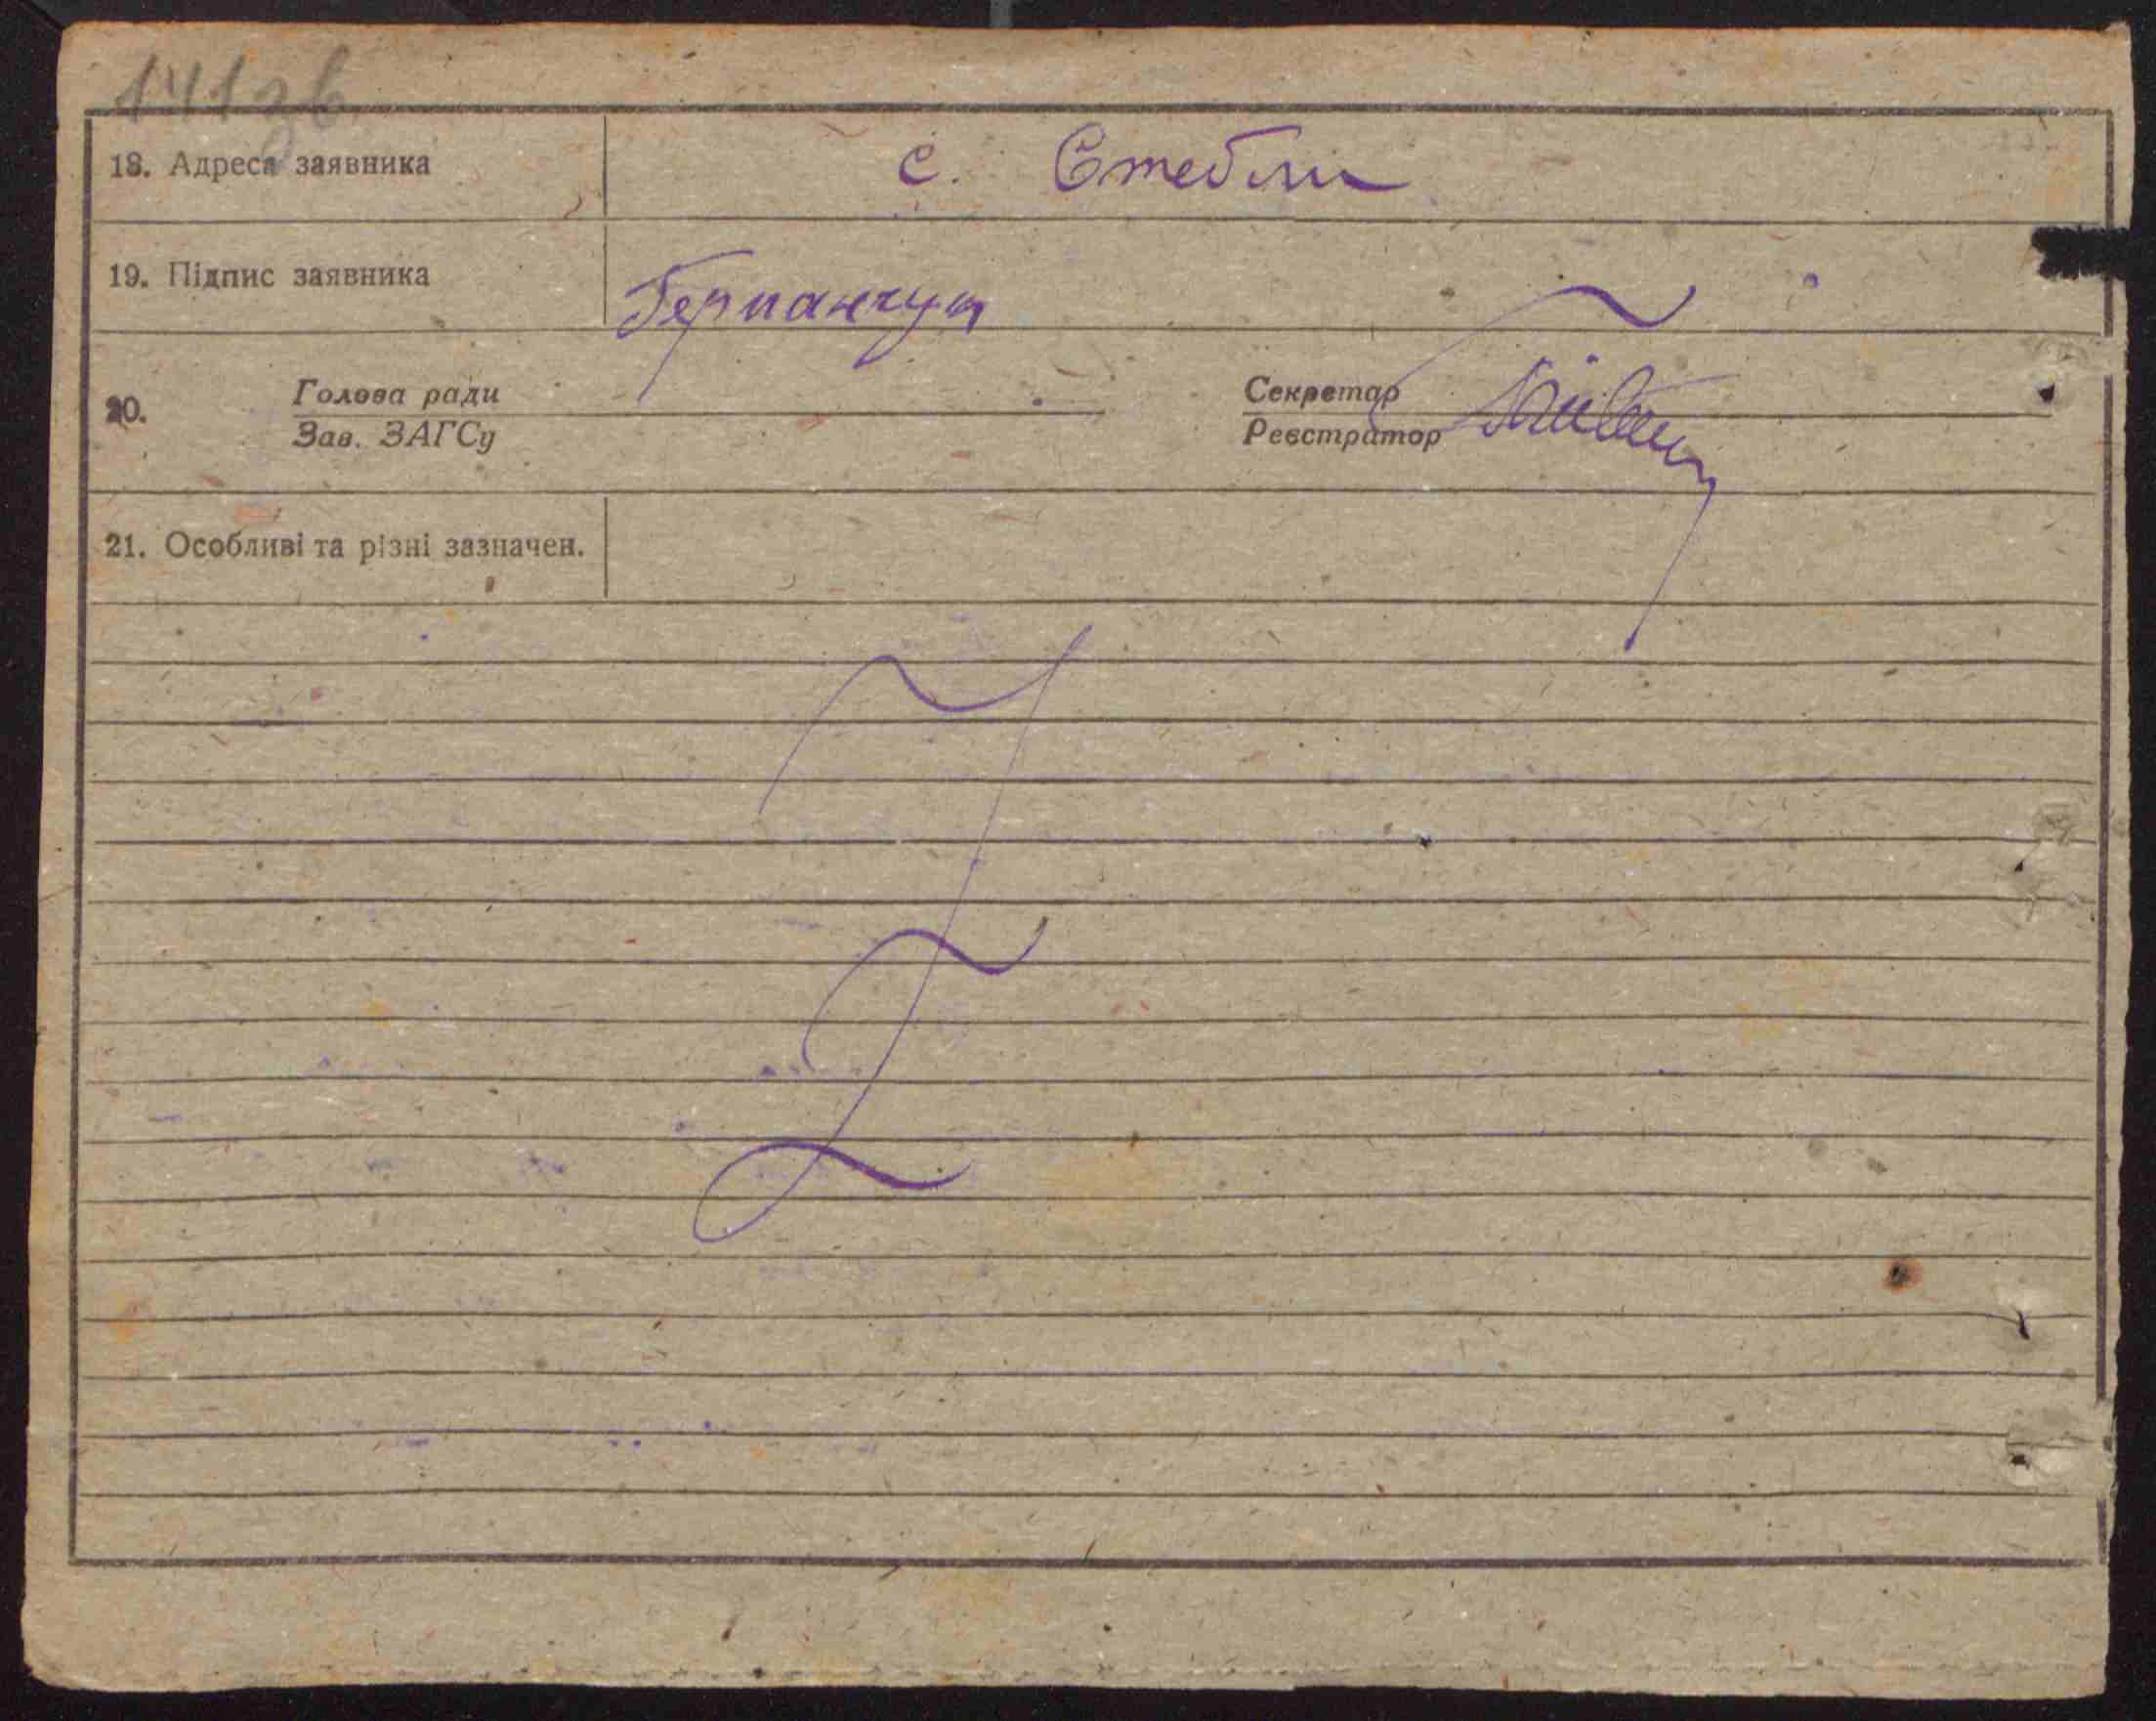 141зв.
18. Адреса заявника с. Стебли
19. Підпис заявника Германчук
20. Голова ради Секретар
Зав. ЗАГСу Реєстратор
21. Особливі та різні зазначен.